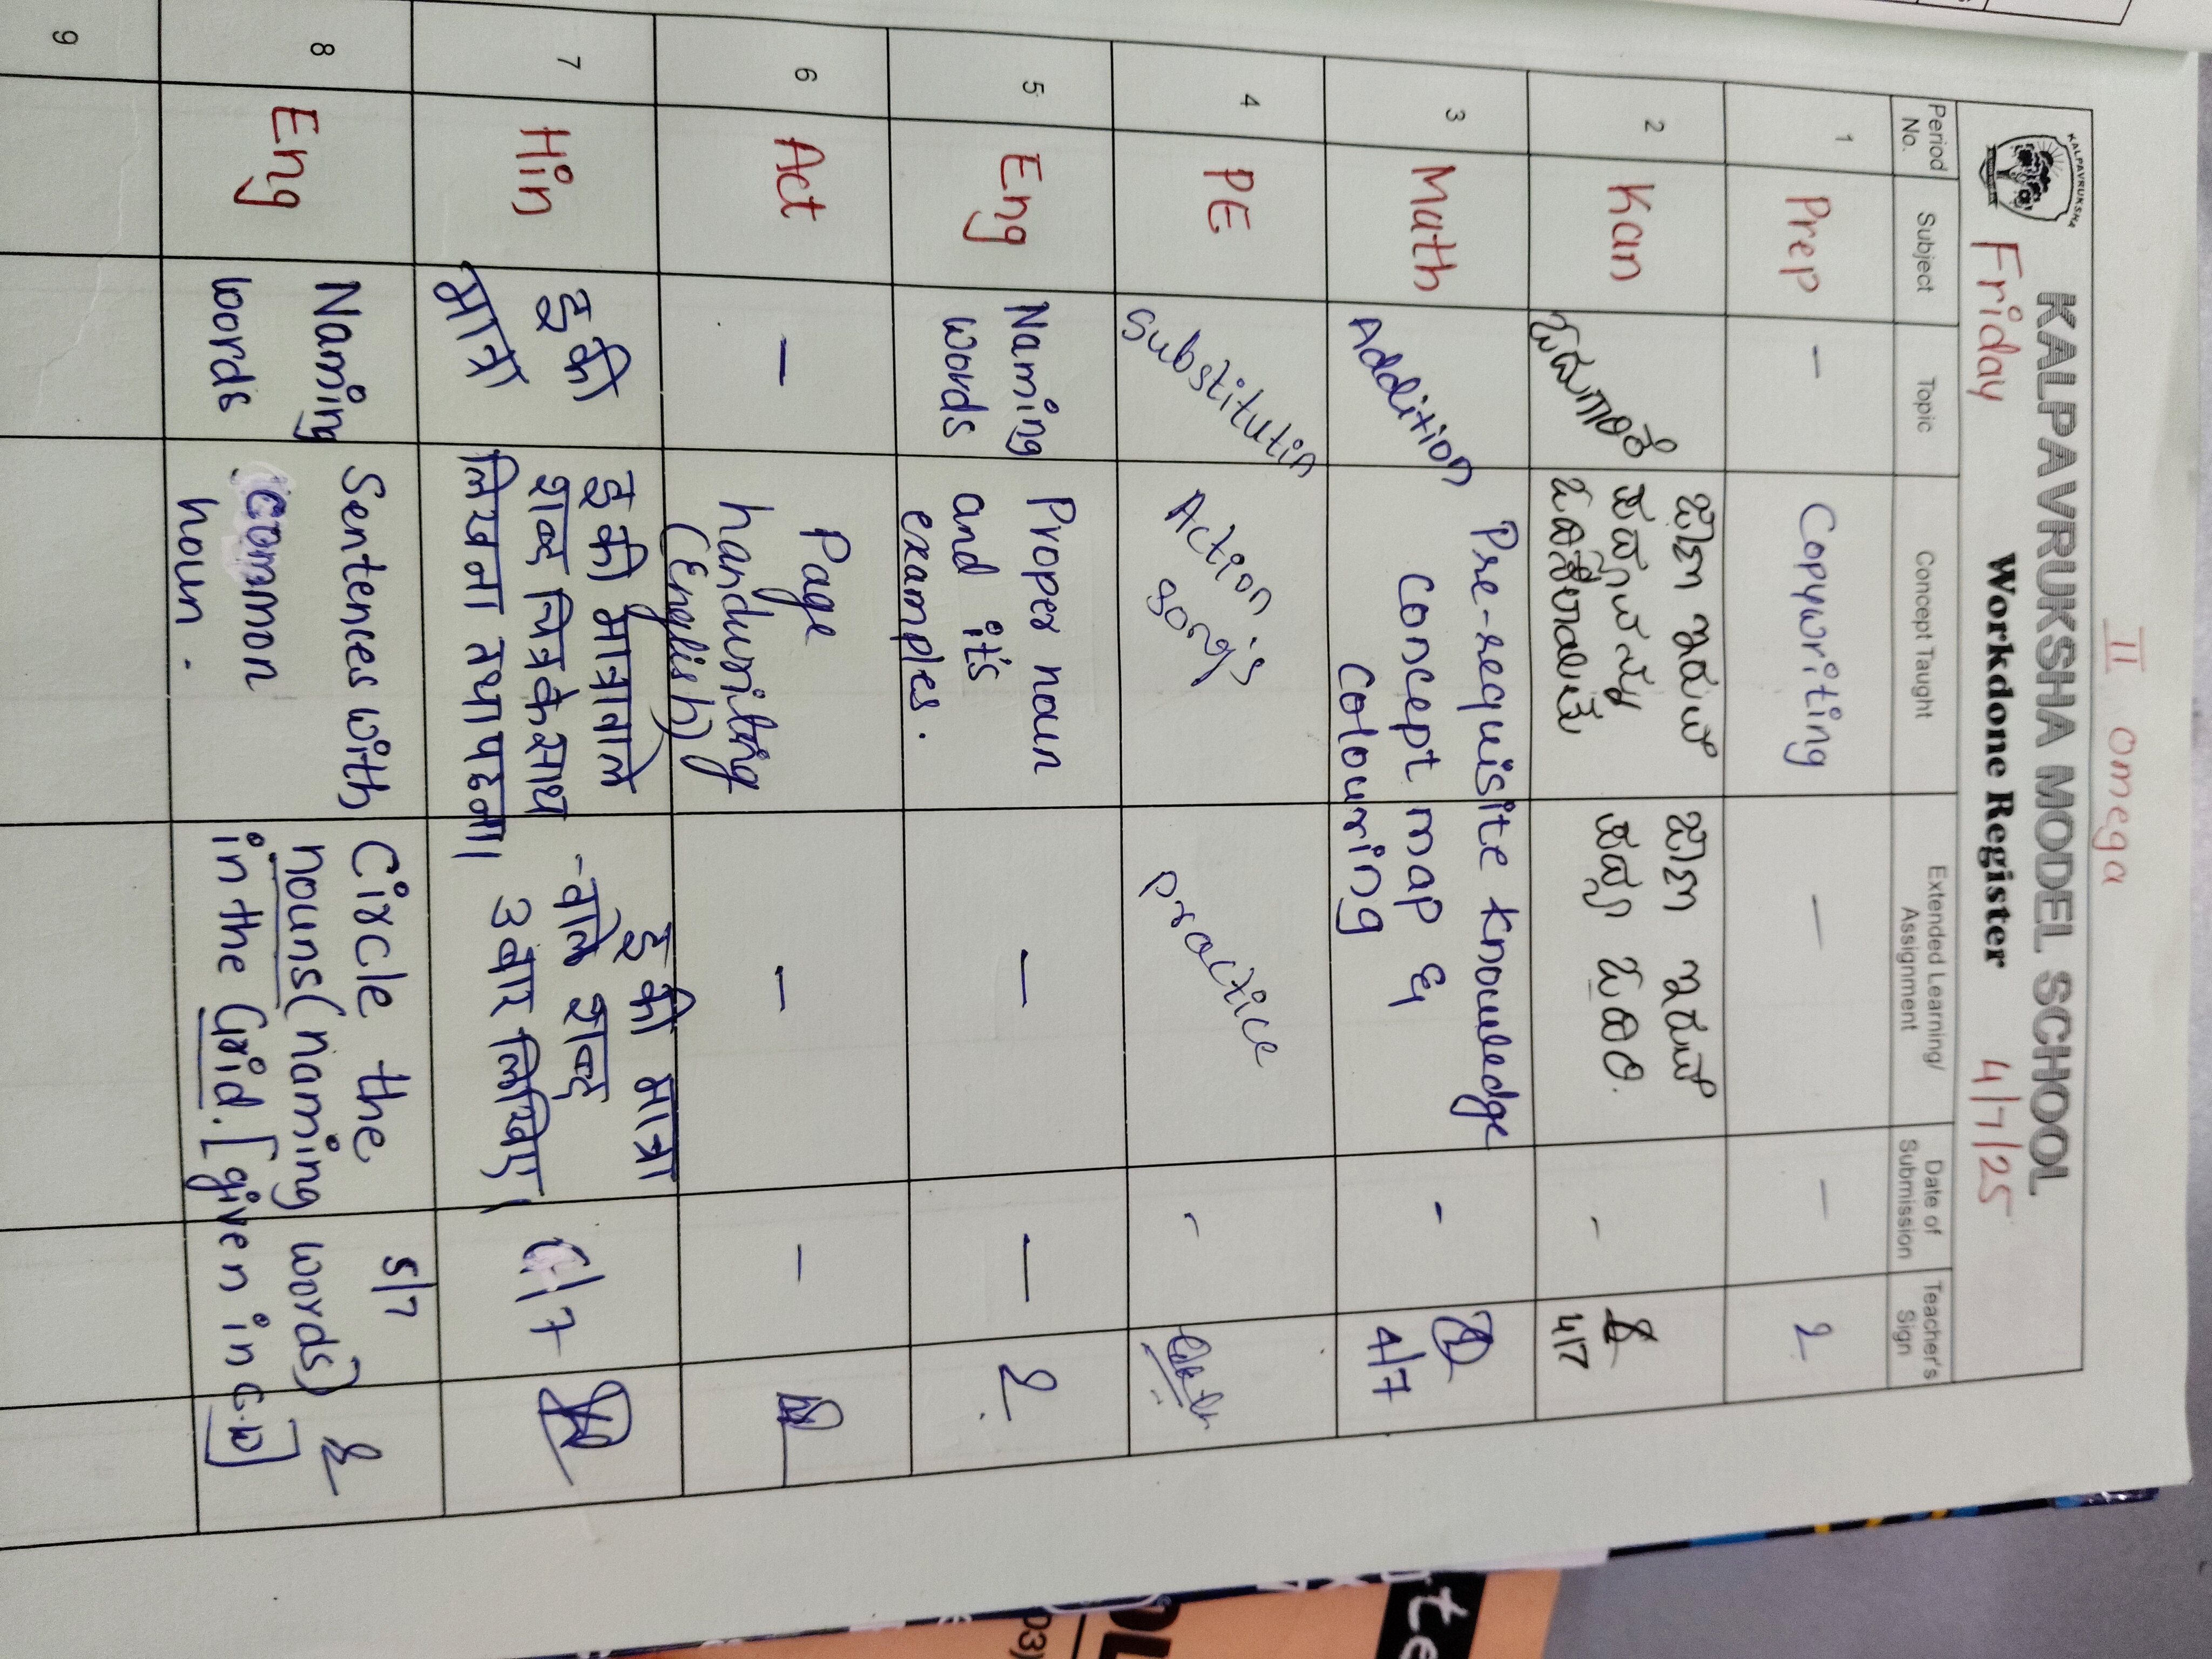 II omega
KALPAVRUKSHA
KALPAVRUKSHA MODEL SCHOOL
Friday Workdone Register 4/7/25
Period No. Subject Topic Concept Taught Extended Learning/ Assignment Date of Submission Teacher's Sign
1 Prep - Copywriting - -
2 Kan - 4/7
3 Math Addition Pre-requisite knowledge
concept map &
colouring - 4/7
4 PE Substitutin Action songs practice -
5 Eng Naming words Proper noun and it's examples. - -
6 Act - Page handwriting (English) - -
7 Hin इ की मात्रा इ की मात्रा वाले
शब्द चित्र के साथ
लिखना तथा पढ़ना। इ की मात्रा
-वाले शब्द
3 बार लिखिए।
8 Eng Naming words Sentences with common noun. Circle the
nouns (naming words)
in the Grid. [given in C.W] 5/7
9